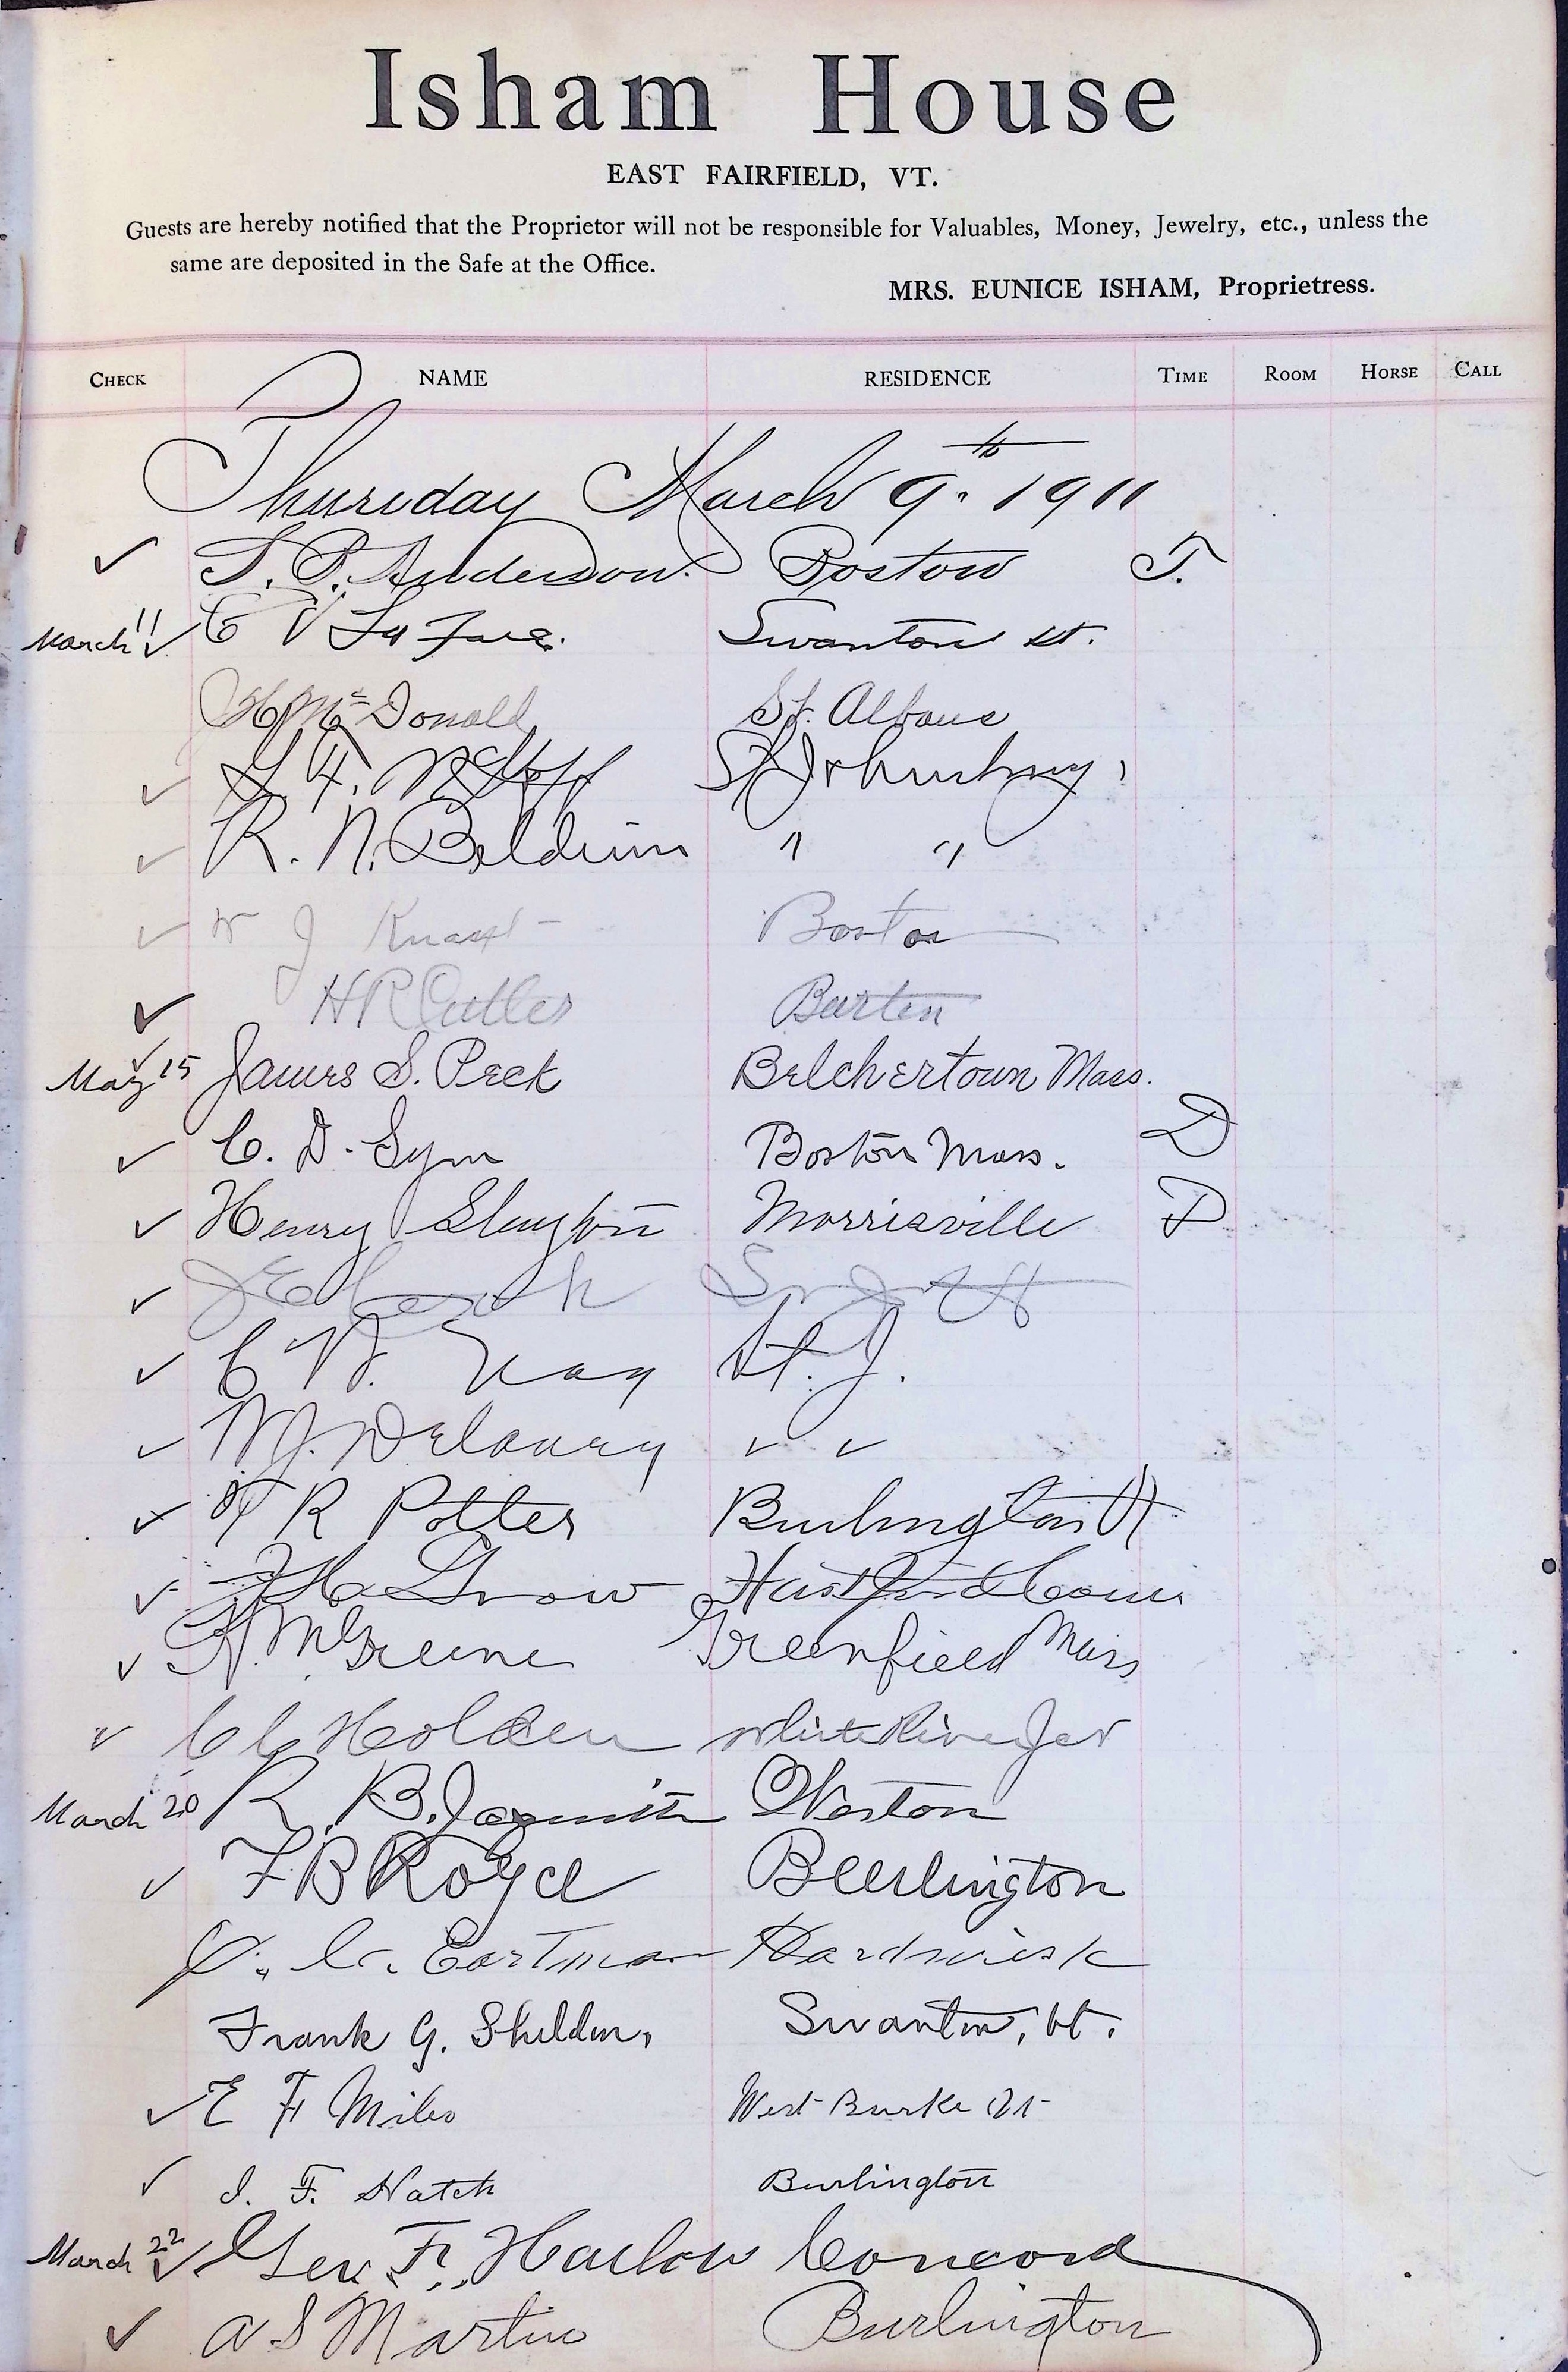 Isham House
EAST FAIRFIELD, VT.
Guests are hereby notified that the Proprietor will not be responsible for Valuables, Money, Jewelry, etc., unless the
same are deposited in the Safe at the Office.
MRS. EUNICE ISHAM, Proprietress.
CHECK NAME RESIDENCE TIME ROOM HORSE CALL
Thursday March 9th 1911
✓ Anderson Boston T.
March 11 ✓ C V Swanton Vt.
H Mc Donald St. Albans
✓ St Johnsbury,
✓ R. N. Beldwin " "
✓ W J Boston
✓ H R Cutler Barton
May 15 ✓ James S. Peck Belchertown Mass.
✓ C. D. Sym Boston Mass. D
✓ Henry Slayton Morrisville D
✓
✓ C W. St. J.
✓ W. J. Delaney ✓ ✓
✓ R Potter Burlington Vt
✓ Grow Hartford Conn
✓ H. M Greene Greenfield Mass
✓ C C Holden White River Jct
March 20 R. B. Weston
✓ F B Royce Burlington
C. Eastman Hardwick
Frank G. Sheldon, Swanton, Vt.
✓ E F Miles West Burke Vt
✓ I. F. Hatch Burlington
March 22 ✓ Geo. F. Harlow Concord
✓ A S Martin Burlington